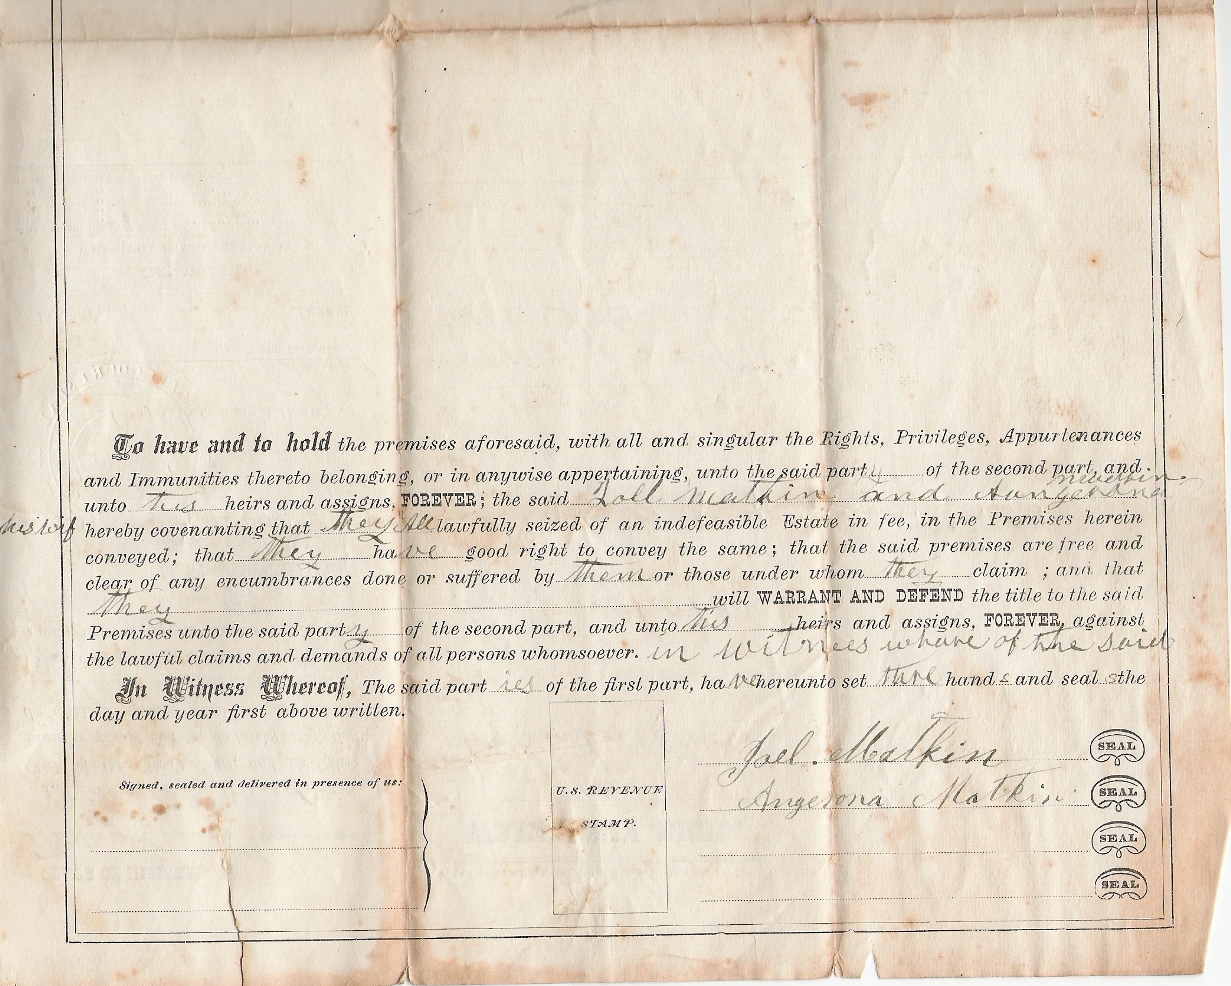 To have and to hold the premises aforesaid, with all and singular the Rights, Privileges, Appurtenances
and Immunities thereto belonging, or in anywise appertaining, unto the said party of the second part, and
matkin
unto his heirs and assigns, FOREVER; the said Joll matkin and Aangerona
his wif hereby covenanting that they are lawfully seized of an indefeasible Estate in fee, in the Premises herein
conveyed; that they have good right to convey the same; that the said premises are free and
clear of any encumbrances done or suffered by them or those under whom they claim; and that
they will WARRANT AND DEFEND the title to the said
Premises unto the said party of the second part, and unto his heirs and assigns, FOREVER, against
the lawful claims and demands of all persons whomsoever. in witnees whare of the said
In Witness Whereof, The said part ies of the first part, have hereunto set thare hands and seals the
day and year first above written.
Joel. Matkin SEAL
Signed, sealed and delivered in presence of us:
U.S. REVENUE
STAMP.
Angerona Matkin SEAL
SEAL
SEAL